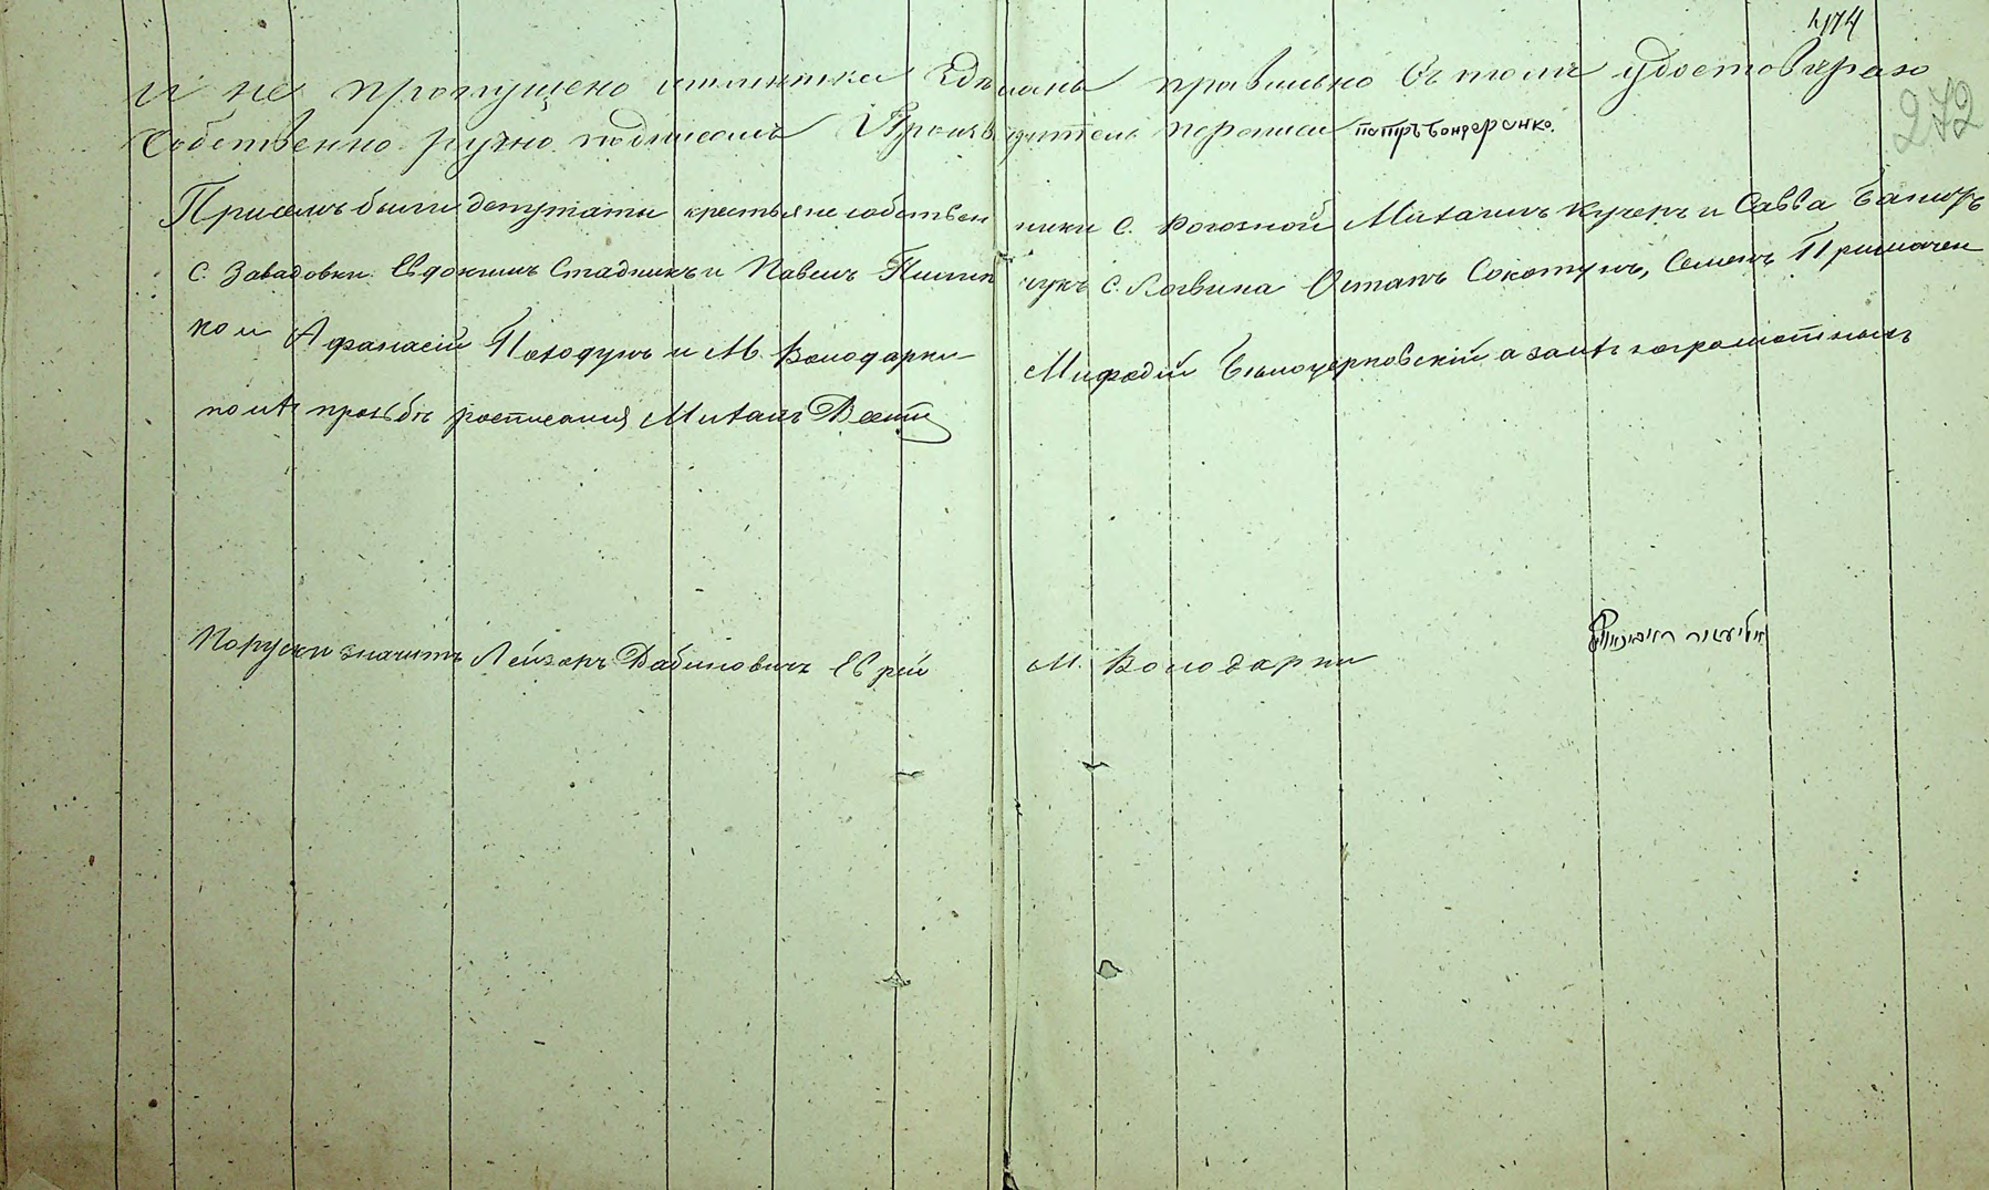 474
272
и не пропущено отметка сделана правильно въ томъ удостоверяю
Собственно ручно подписалъ Производитель переписи Петръ Бондаренко.
При семъ были депутаты крестьяне собственники с. Рогозной Михаилъ Кучеръ и Савва
с. Завадовки Евдокимъ Стадникъ и Павелъ с. Логвина Остапъ Сокотунъ, Семенъ Примачен
ко и Афанасій Походунъ и М. Володарки Мифодій Белоцерковскій а за ихъ неграмотныхъ
по ихъ прозьбе росписался Михаилъ
По руски значитъ Лейзеръ Рабиновичъ Еврей М. Володарки
אליעזר ראבינאוויץ